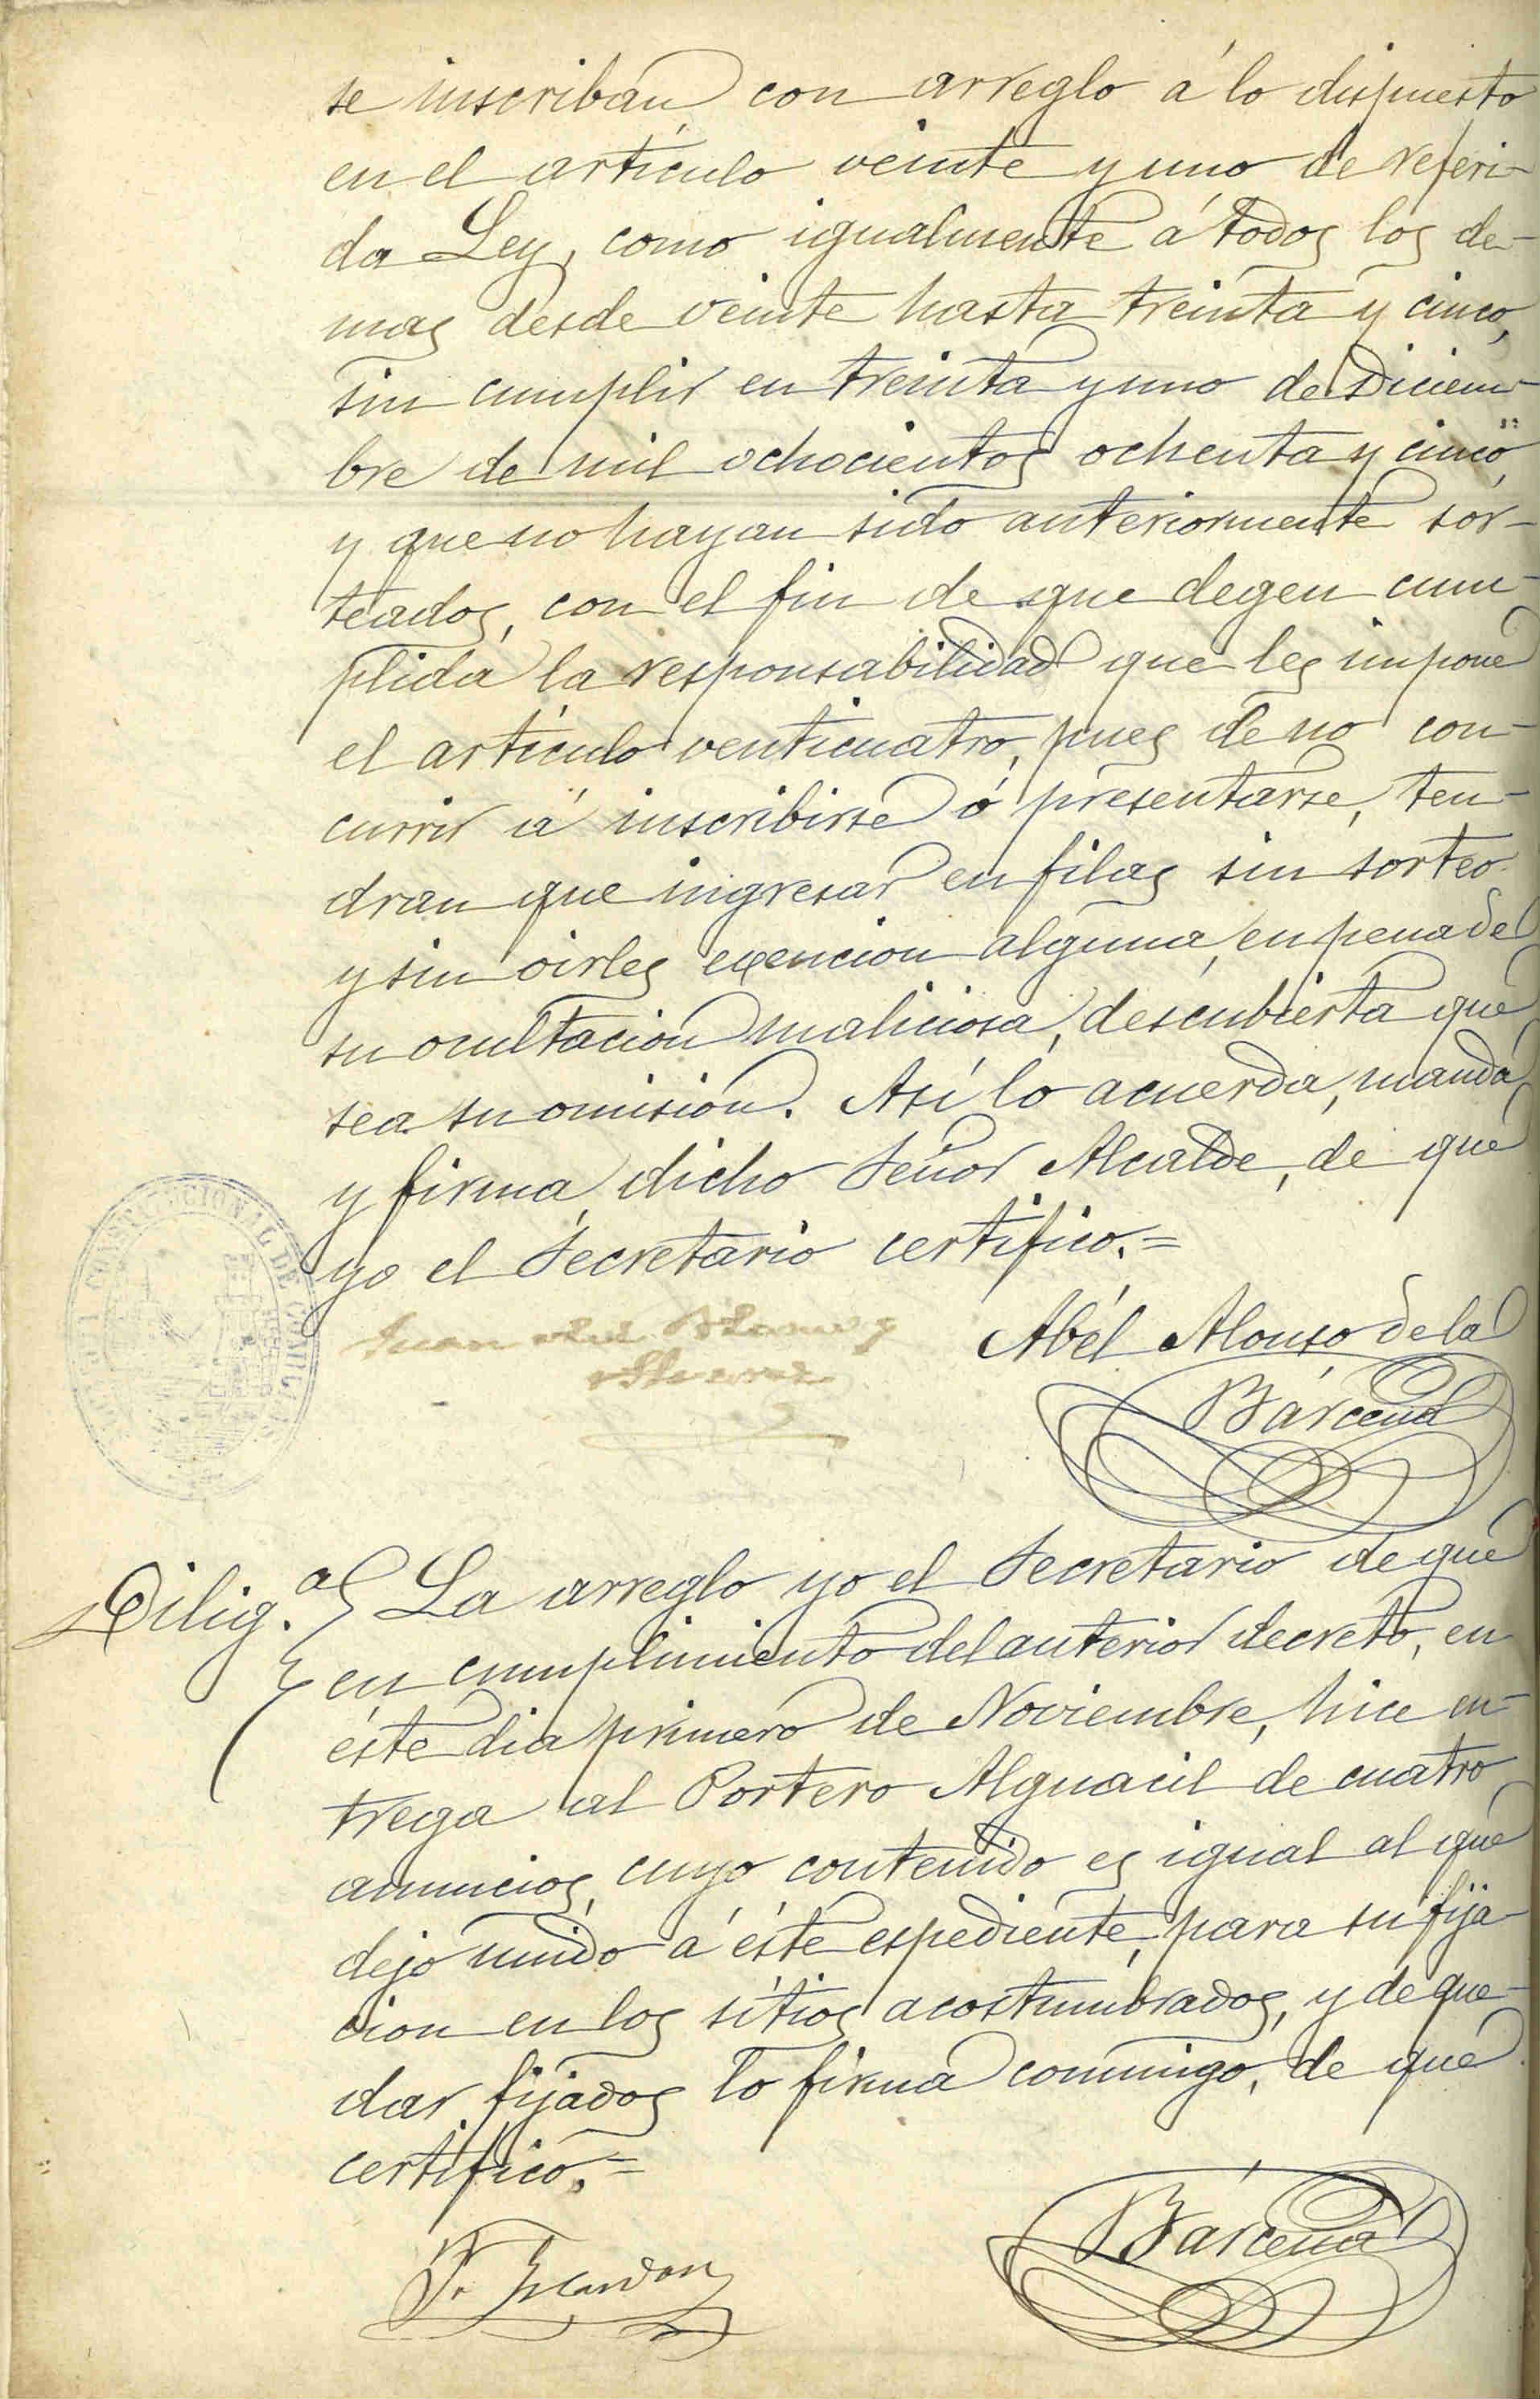 se inscriban con arreglo á lo dispuesto
en el artículo veinte y uno de referi-
da Ley, como igualmente á todos los de-
mas desde veinte hasta treinta y cinco,
sin cumplir en treinta y uno de Diciem-
bre de mil ochocientos ochenta y cinco,
y que no hayan sido anteriormente sor-
teados, con el fin de que degen cum-
plida la responsabilidad que les impone
el artículo venticuatro, pues de no con-
currir á inscribirse ó presentarse, ten-
dran que ingresar en filas sin sorteo
y sin oirles exencion alguna, en pena de
su ocultacion maliciosa, descubierta que
sea su omisión. Así lo acuerda, manda
y firma dicho Señor Alcalde, de que
yo el Secretario certifico.=
CONSTITUCIONAL DE
Juan
Abél Alonso de la
Bárcena
Dilig.ª La arreglo yo el Secretario de que
en cumplimiento del anterior decreto, en
éste dia primero de Noviembre, hice en-
trega al Portero Alguacil de cuatro
anuncios, cuyo contenido es igual al que
dejo unido á éste espediente, para su fija-
cion en los sitios acostumbrados, y de que-
dar fijados lo firma conmigo, de que
certifico.=
Bárcena